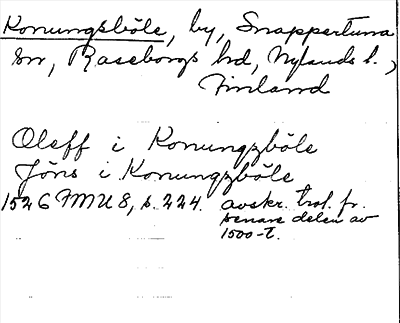 Konungsböle, by, Snappertuna
sn, Raseborgs hd, Nylands l.,
Finland
Oleff i Konungzböle
Jöns i Konungzböle
1526 FMU 8, s. 224. avskr. trol. fr.
senare delen av
1500-t.